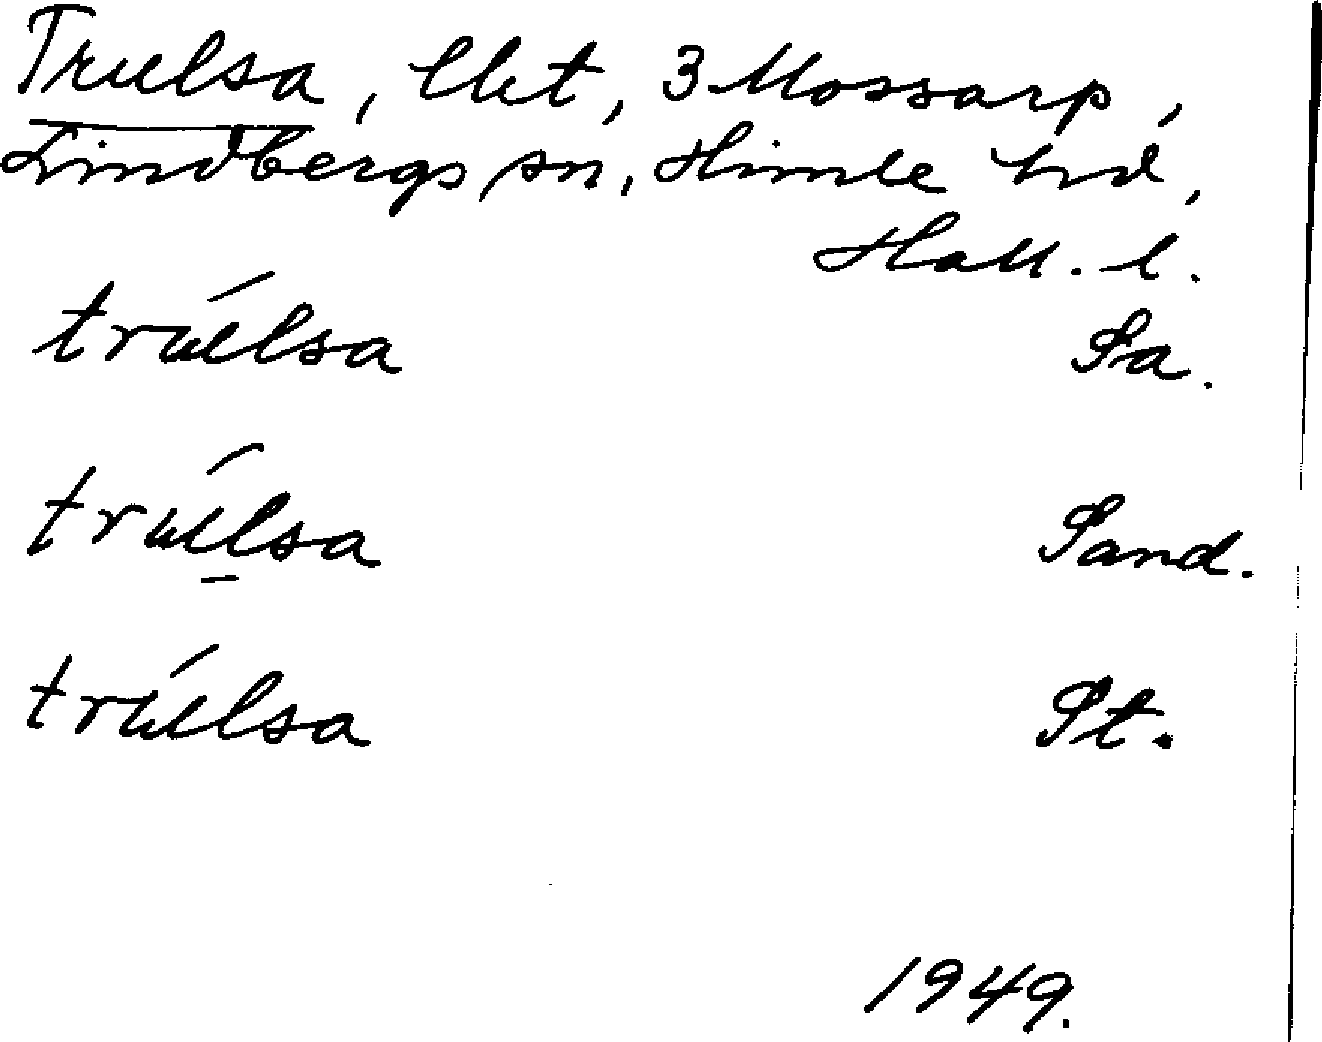 Trulsa, lht, 3 Mossarp,
Lindbergs sn, Himle hd,
Hall. l.
trúlsa Sa.
trúlsa Sand.
trúlsa St.
1949.